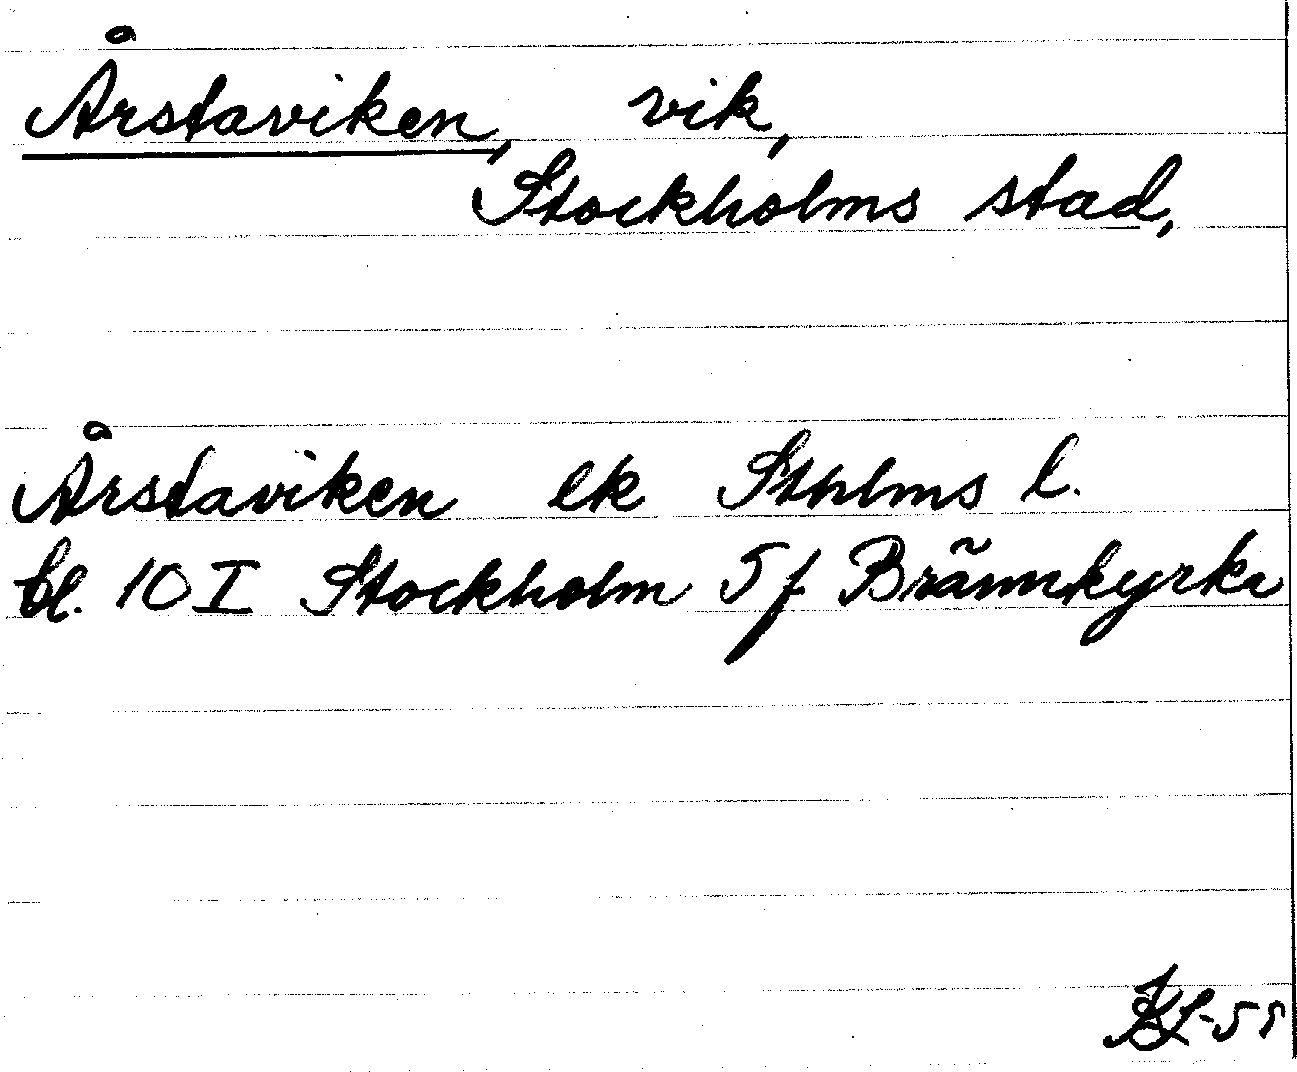 Årstaviken, vik,
Stockholms stad,
Årstaviken ek Sthlms l.
bl. 10 I Stockholm 5 f Brännkyrka
KL-55